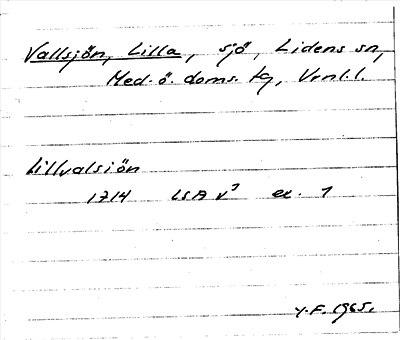 Vallsjön, Lilla, sjö, Lidens sn,
Med. ö. doms. tg, Vrnl.l.
Lillvalsiön
1714 LSA v³ ex. 1
Y.F. 1965.